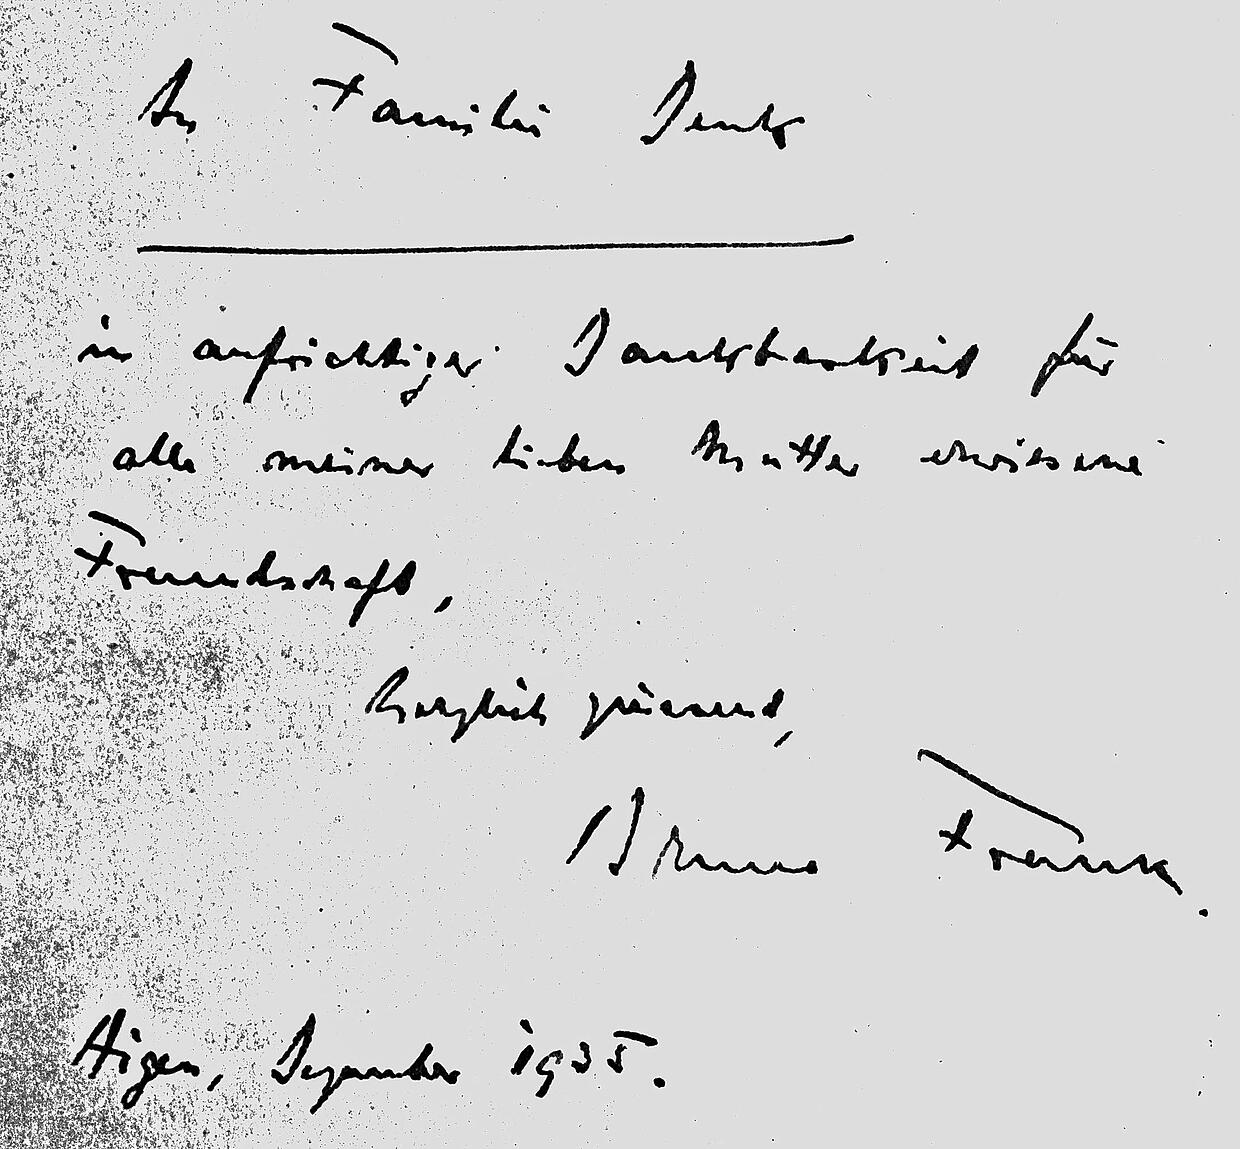 Der Familie Denk
in aufrichtiger Dankbarkeit für
alle meiner lieben Mutter erwiesene
Freundschaft,
herzlich grüssend,
Bruno Frank.
Aigen, Dezember 1935.